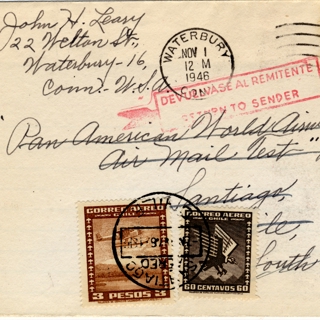 John H. Leary
122 Welton St.,
Waterbury-16,
Conn. U.S.A.
WATERBURY
NOV 1
12 M
1946
DEVUELVASE AL REMITENTE
RETURN TO SENDER
Pan American World Airways
Air Mail Test "
Santiago,
South
CORREO AEREO
CHILE
3 PESOS 3
CORREO AEREO
CHILE
60 CENTAVOS 60